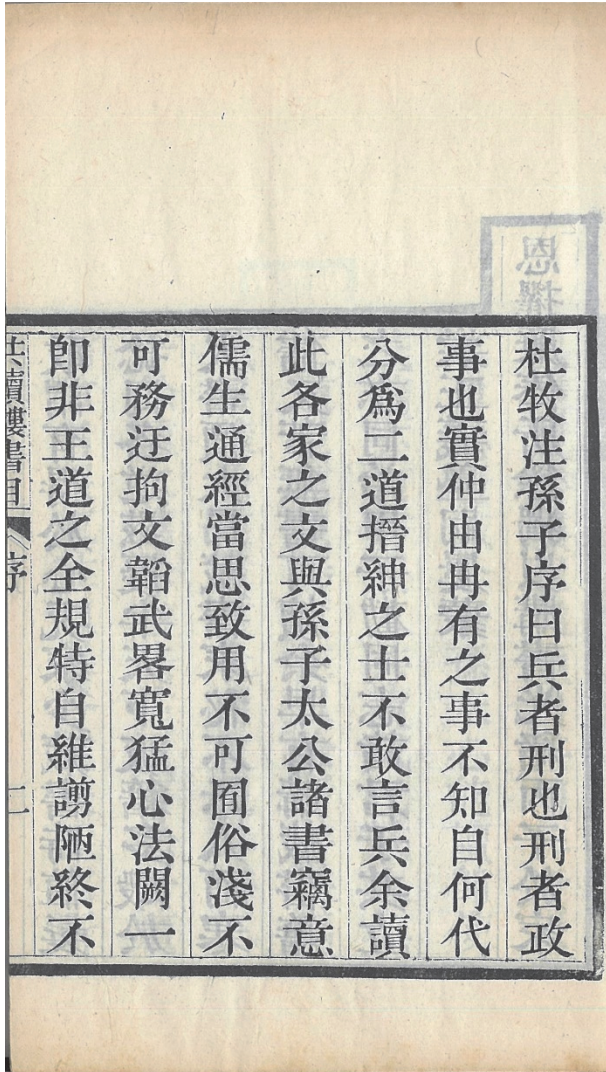 杜牧注孫子序曰兵者刑也刑者政
事也實仲由冉有之事不知自何代
分爲二道搢紳之士不敢言兵余讀
此各家之文與孫子太公諸書竊意
儒生通經當思致用不可囿俗淺不
可務迂拘文韜武畧寬猛心法闕一
卽非王道之全規特自維謭陋終不
共讀樓書目 序 二